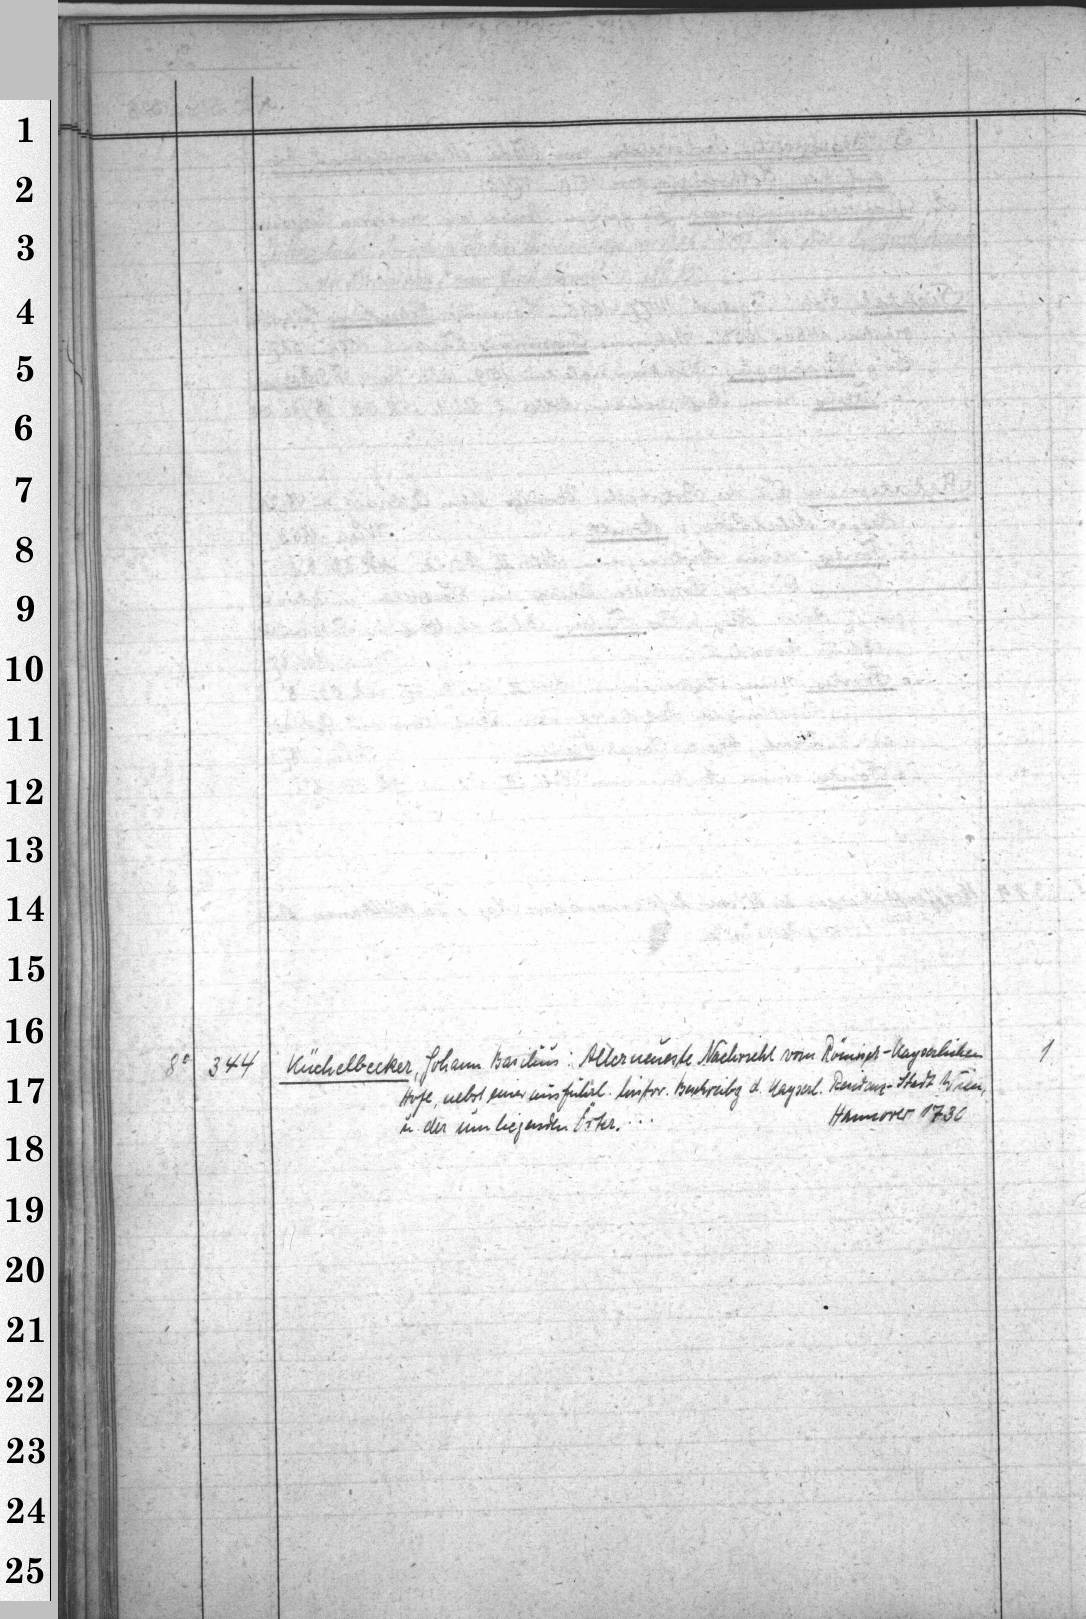 1
2
3
4
5
6
7
8
9
10
11
12
13
14
15
16
8° 344 Küchelbecker, Johann Basilius: Allerneueste Nachricht vom Römisch-Kayserlichen 1
17
Hofe, nebst einer ausführl. histor. Beschreibg d. Kayserl. Residenz-Stadt Wien,
u. der umliegenden Örter. ... Hannover 1730
18
19
20
21
22
23
24
25